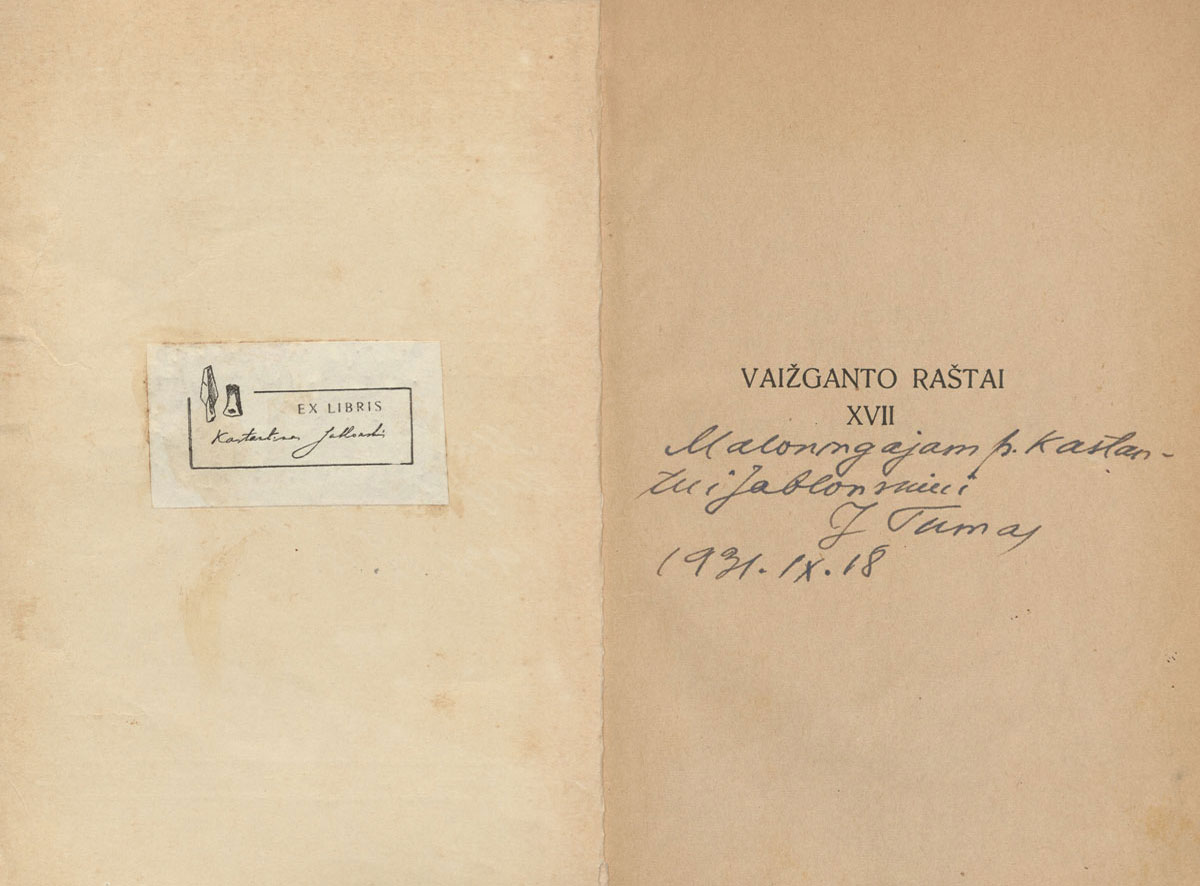 EX LIBRIS
Konstantinas Jablonskis
VAIŽGANTO RAŠTAI
XVII
Maloningajam p. Kastan-
tui Jablonskiui
J Tumas
1931. IX. 18